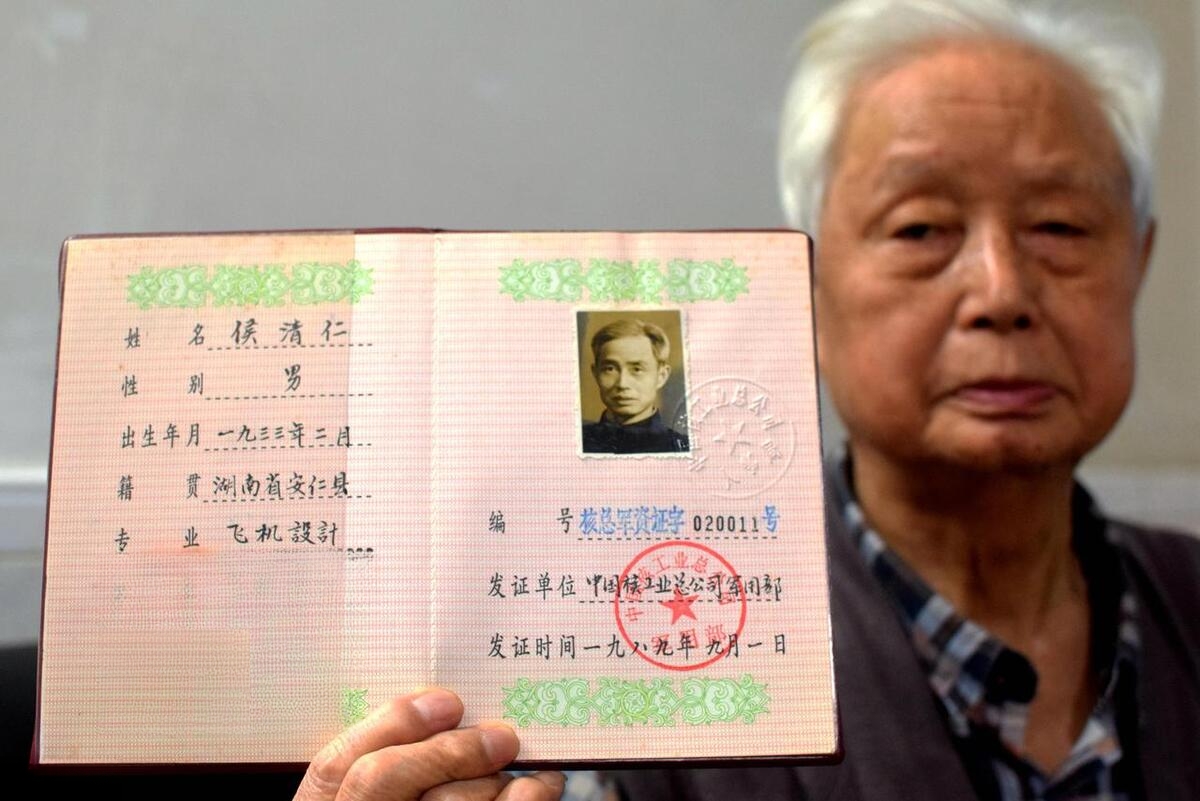 姓 名 侯清仁
性 别 男
出生年月 一九三三年二月
籍 贯 湖南省安仁县
专 业 飞机設計
编 号 核总军资证字 020011号
发证单位 中国核工业总公司军用部
发证时间 一九八九年九月一日